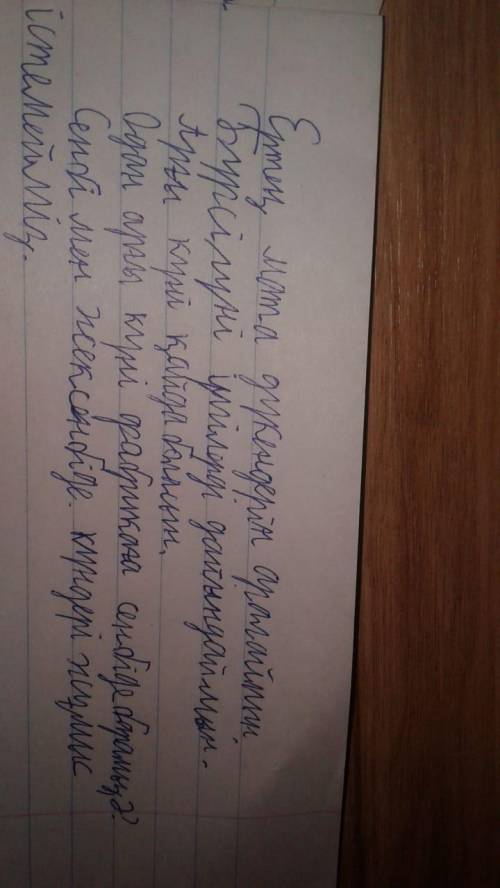 Ертең мата дүкендерін аралаймын
Бүрсігүні үлгілерді дайындаймын.
Арғы күні қайда баласың.
Одан арғы күні фабрикаға сенбіде барамыз?
Сенбі мен жексенбіде күндері жұмыс
істемейміз.